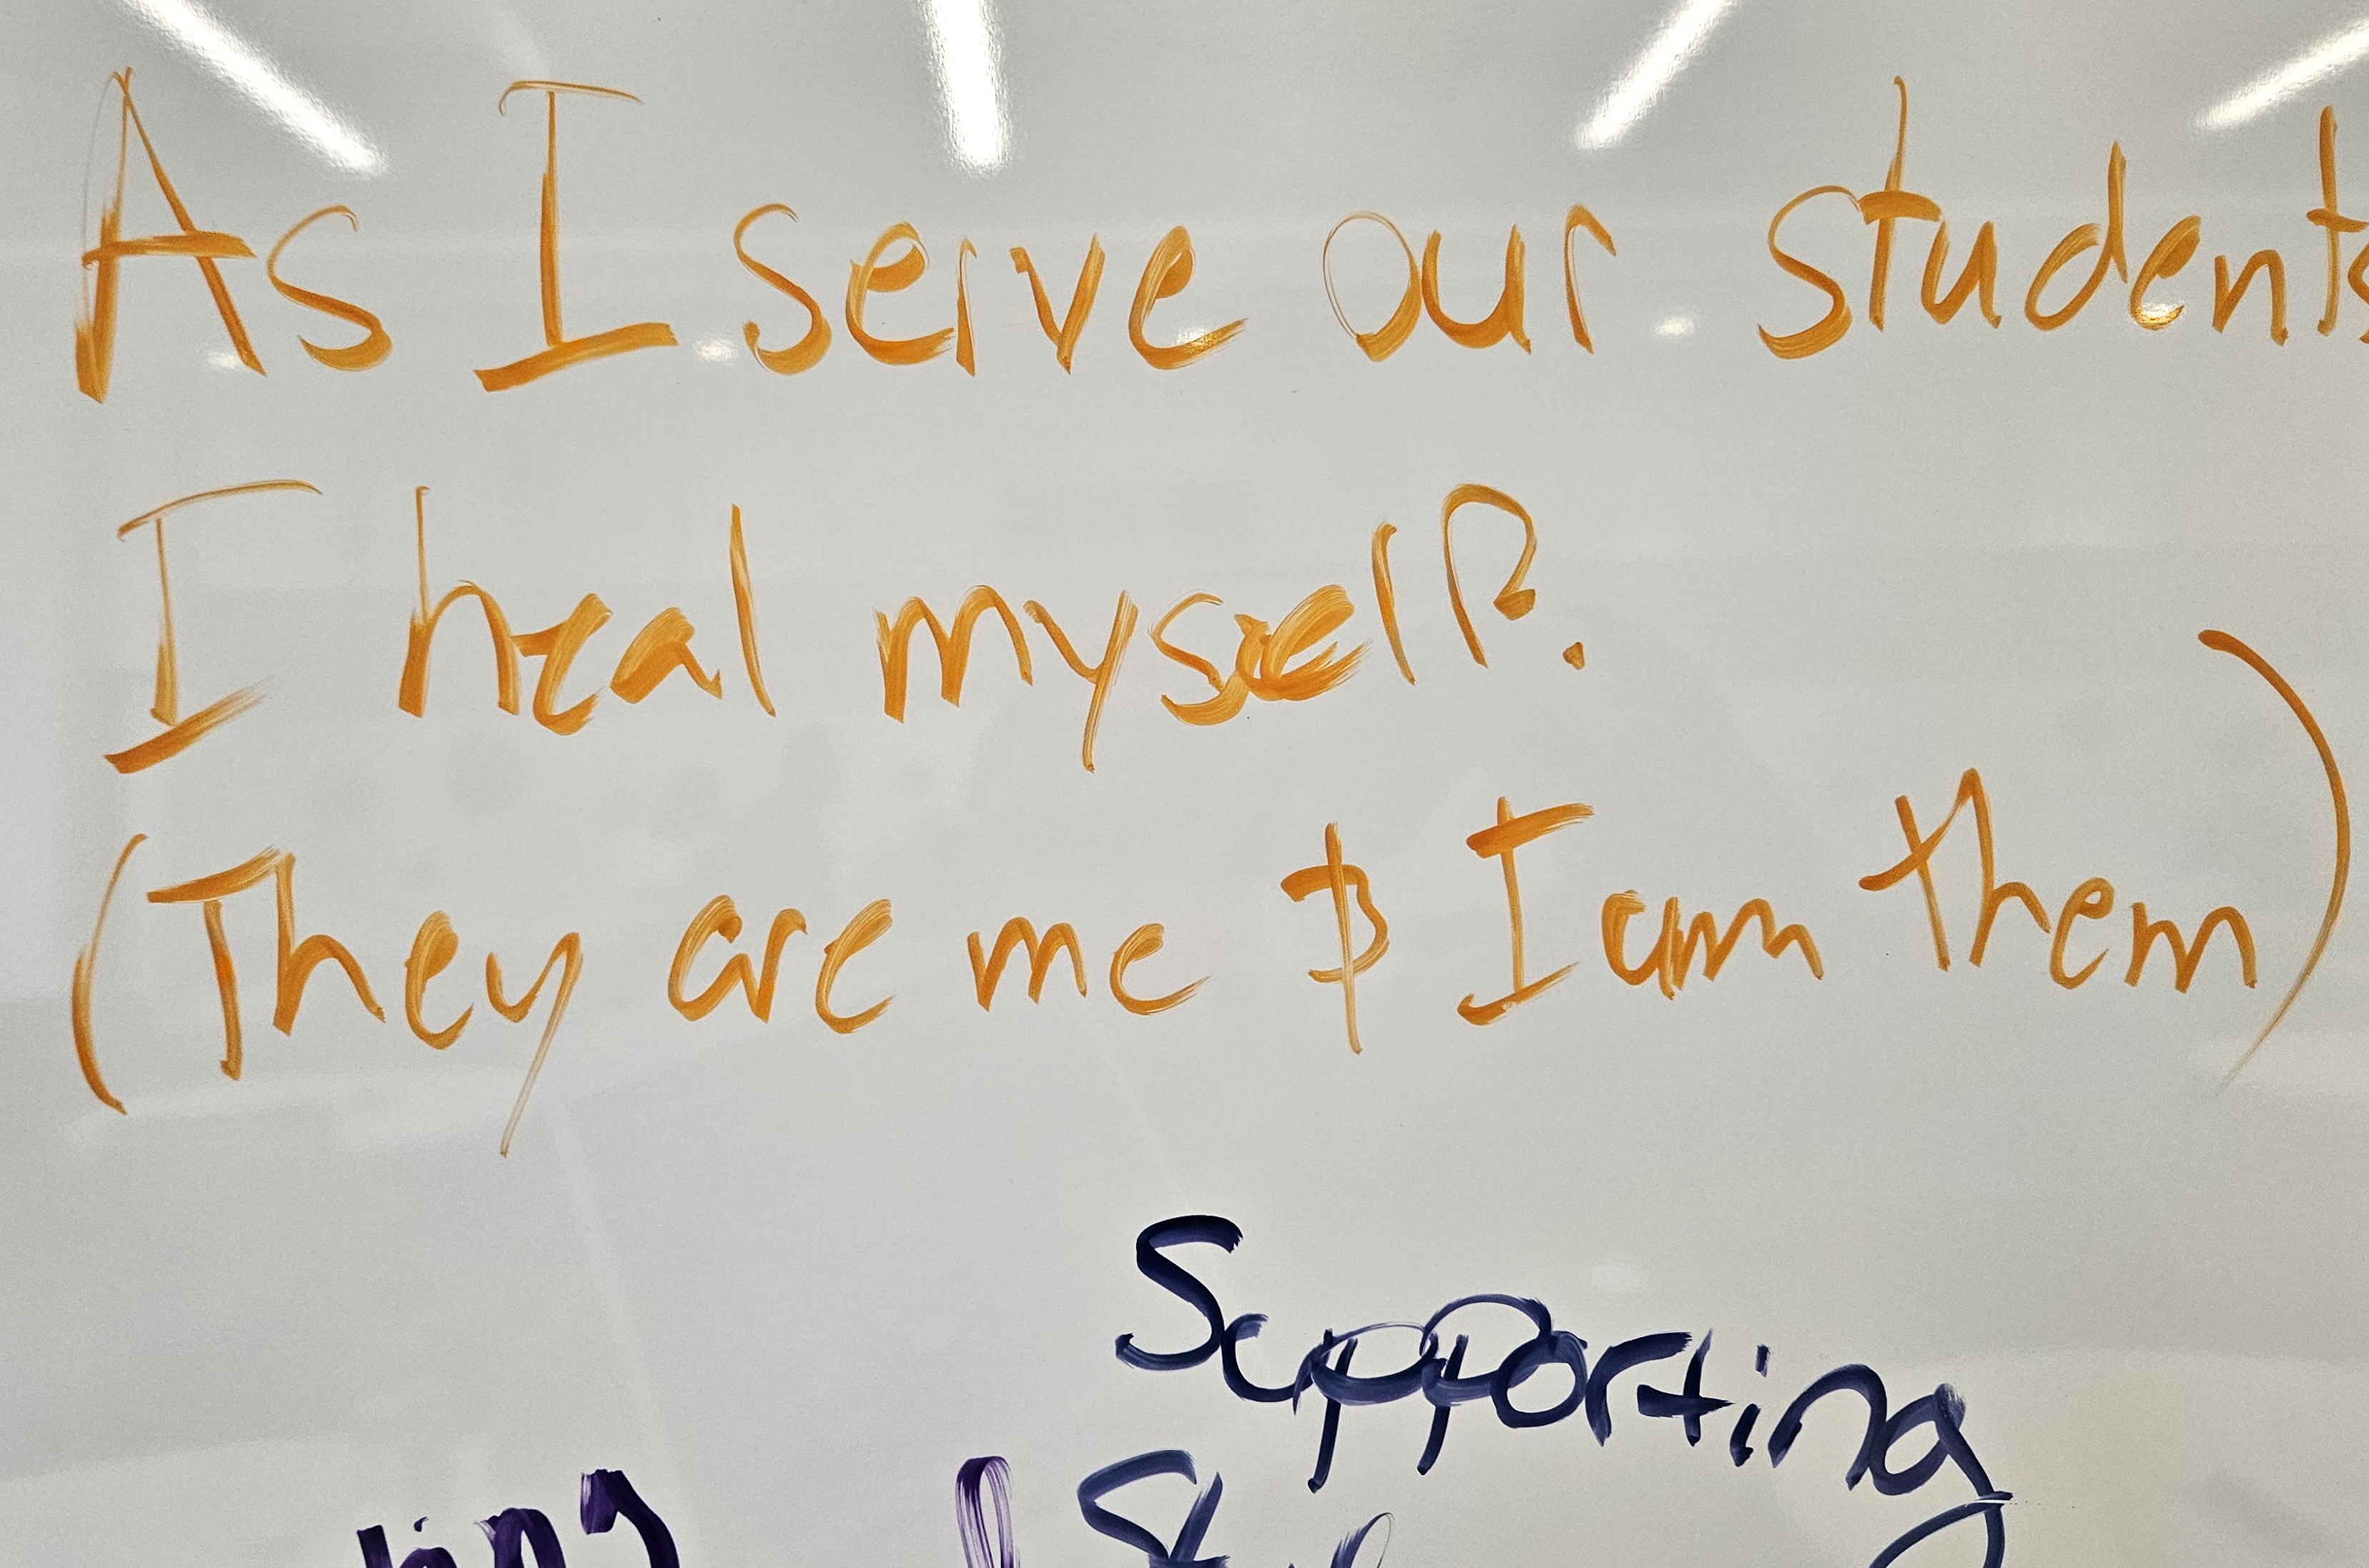 As I serve our students
I heal myself.
(They are me & I am them)
Supporting